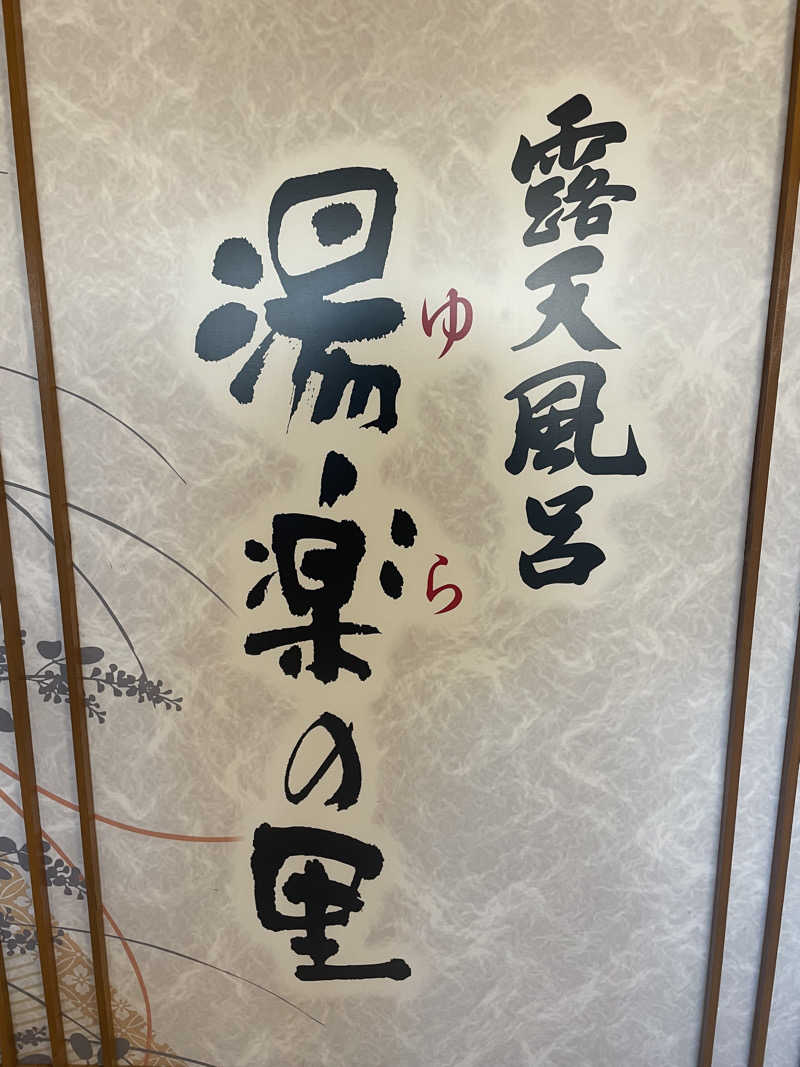 露天風呂
湯楽の里
ゆ
ら